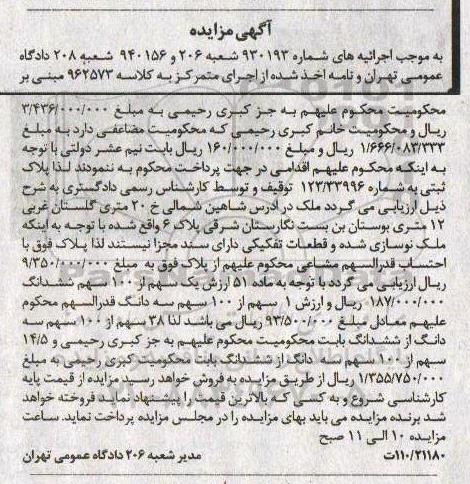 آگهی مزایده
به موجب اجرائیه های شماره ۹۳۰۱۹۳ شعبه ۲۰۶ و ۹۴۰۱۵۶ شعبه ۲۰۸ دادگاه
عمومی تهران و نامه اخذ شده از اجرای متمرکز به کلاسه ۹۶۲۵۷۳ مبنی بر
محکومیت محکوم علیهم به جز کبری رحیمی به مبلغ ۳/۴۳۶/۰۰۰/۰۰۰
ریال و محکومیت خانم کبری رحیمی که محکومیت مضاعفی دارد به مبلغ
۱/۶۶۶/۰۸۳/۳۳۳ ریال و مبلغ ۱۶۰/۰۰۰/۰۰۰ ریال بابت نیم عشر دولتی با توجه
به اینکه محکوم علیهم اقدامی در جهت پرداخت محکوم به ننمودند لذا پلاک
ثبتی به شماره ۱۲۳/۳۳۹۹۶ توقیف و توسط کارشناس رسمی دادگستری به شرح
ذیل ارزیابی می گردد ملک در آدرس شاهین شمالی خ ۲۰ متری گلستان غربی
۱۲ متری بوستان بن بست نگارستان شرقی پلاک ۶ واقع شده با توجه به اینکه
ملک نوسازی شده و قطعات تفکیکی دارای سند مجزا نیستند لذا پلاک فوق با
احتساب قدرالسهم مشاعی محکوم علیهم از پلاک فوق به مبلغ ۹/۳۵۰/۰۰۰/۰۰۰
ریال ارزیابی می گردد با توجه به ماده ۵۱ ارزش یک سهم از ۱۰۰ سهم ششدانگ
۱۸۷/۰۰۰/۰۰۰ ریال و ارزش ۱ سهم از ۱۰۰ سهم سه دانگ قدرالسهم محکوم
علیهم معادل مبلغ ۹۳/۵۰۰/۰۰۰ ریال می باشد لذا ۳۸ سهم از ۱۰۰ سهم سه
دانگ از ششدانگ بابت محکومیت محکوم علیهم به جز کبری رحیمی و ۱۴/۵
سهم از ۱۰۰ سهم سه دانگ از ششدانگ بابت محکومیت کبری رحیمی به مبلغ
۱/۳۵۵/۷۵۰/۰۰۰ ریال از طریق مزایده به فروش خواهد رسید مزایده از قیمت پایه
کارشناسی شروع و به کسی که بالاترین قیمت را پیشنهاد نماید فروخته خواهد
شد برنده مزایده می باید بهای مزایده را در مجلس مزایده پرداخت نماید. ساعت
مزایده ۱۰ الی ۱۱ صبح
۱۱۰/۲۱۱۸۰ت مدیر شعبه ۲۰۶ دادگاه عمومی تهران